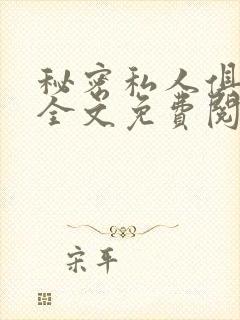 秘密私人俱
全文免費閱
宋平